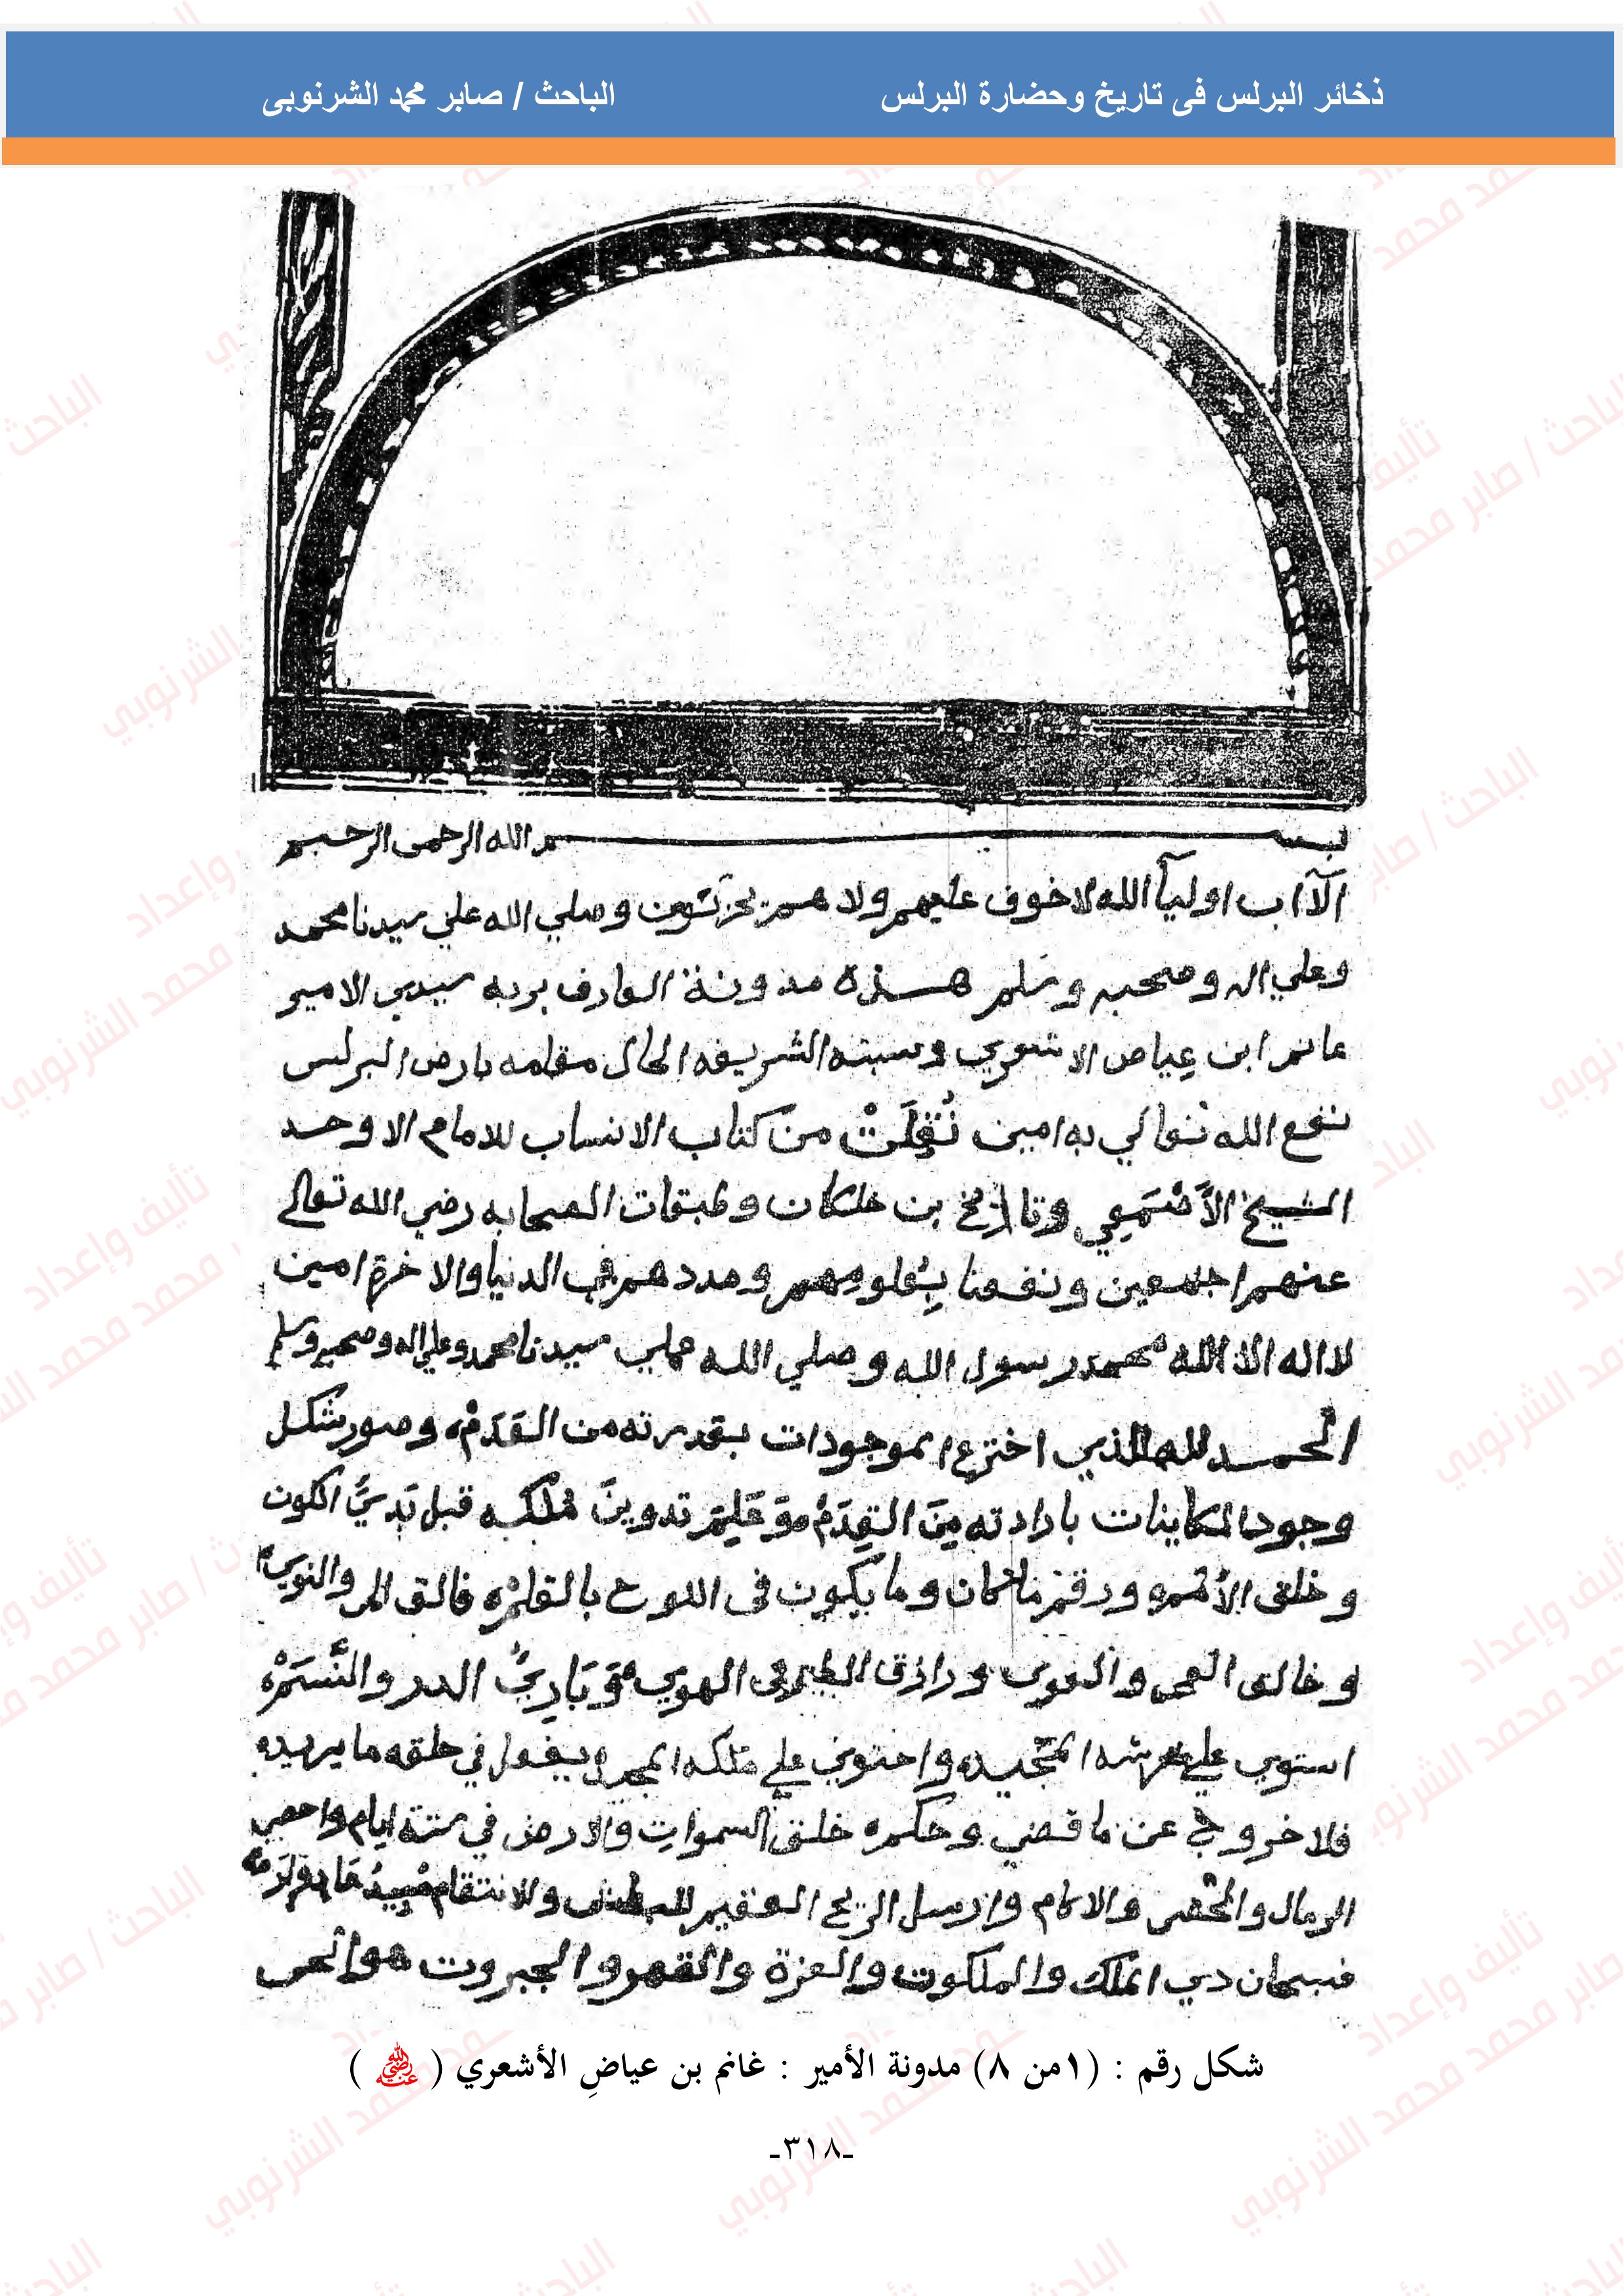 ذخائر البرلس فى تاريخ وحضارة البرلس
الباحث / صابر محمد الشرنوبى
بسم الله الرحمن الرحيم
الآان اوليآ الله لا خوف عليهم ولا هم يحزنون وصلي الله علي سيدنا محمد
وعلي اله وصحبه وسلم هذه مدونة العارف بربه سيدي الامير
غانم ابن عياض الاشعري ونسبته الشريفه الحال مقامه بارض البرلس
نفع الله تعالي به امين نُقِلَتْ من كتاب الانساب للامام الاوحد
الشيخ الأَصْمَعِي وتاريخ بن خلكان وطبقات الصحابه رضي الله تعالي
عنهم اجمعين ونفعنا بِعُلومِهم ومددهم في الدنيا والاخرة امين
لا اله الا الله محمد رسول الله وصلي الله علي سيدنا محمد وعلي اله وصحبه وسلم
الحمد لله الذي اخترع الموجودات بقدرته من العَدَمْ وصور شكل
وجود الكاينات بارادته مِنَ القِدَمْ تدوينَ مُلكه قبل الكون
وخلق ورقم ما كان وما يكون في اللوح بالقلم فالق الحب والنوي
وخالق ورازق الطير في الهوي وَبَارِئُ الدر والنَّسَمْ
استوي علي عرشه المجيد واحتوي علي ملكه يفعل في خلقه ما يريد
فلا خروج عن ما قضي وحكم خلق السموات والارض في ستة ايام واحصي
الرمال والحصي والاكام وارسل الريح العقيم والانتقام
فسبحان دي الملك والملكوت والعزة والقهر والجبروت هو الحي
شكل رقم : (١من ٨) مدونة الأمير : غانم بن عياضِ الأشعري ( رضي الله عنه )
-٣١٨-
تأليف وإعداد
الباحث / صابر محمد محمد الشرنوبي